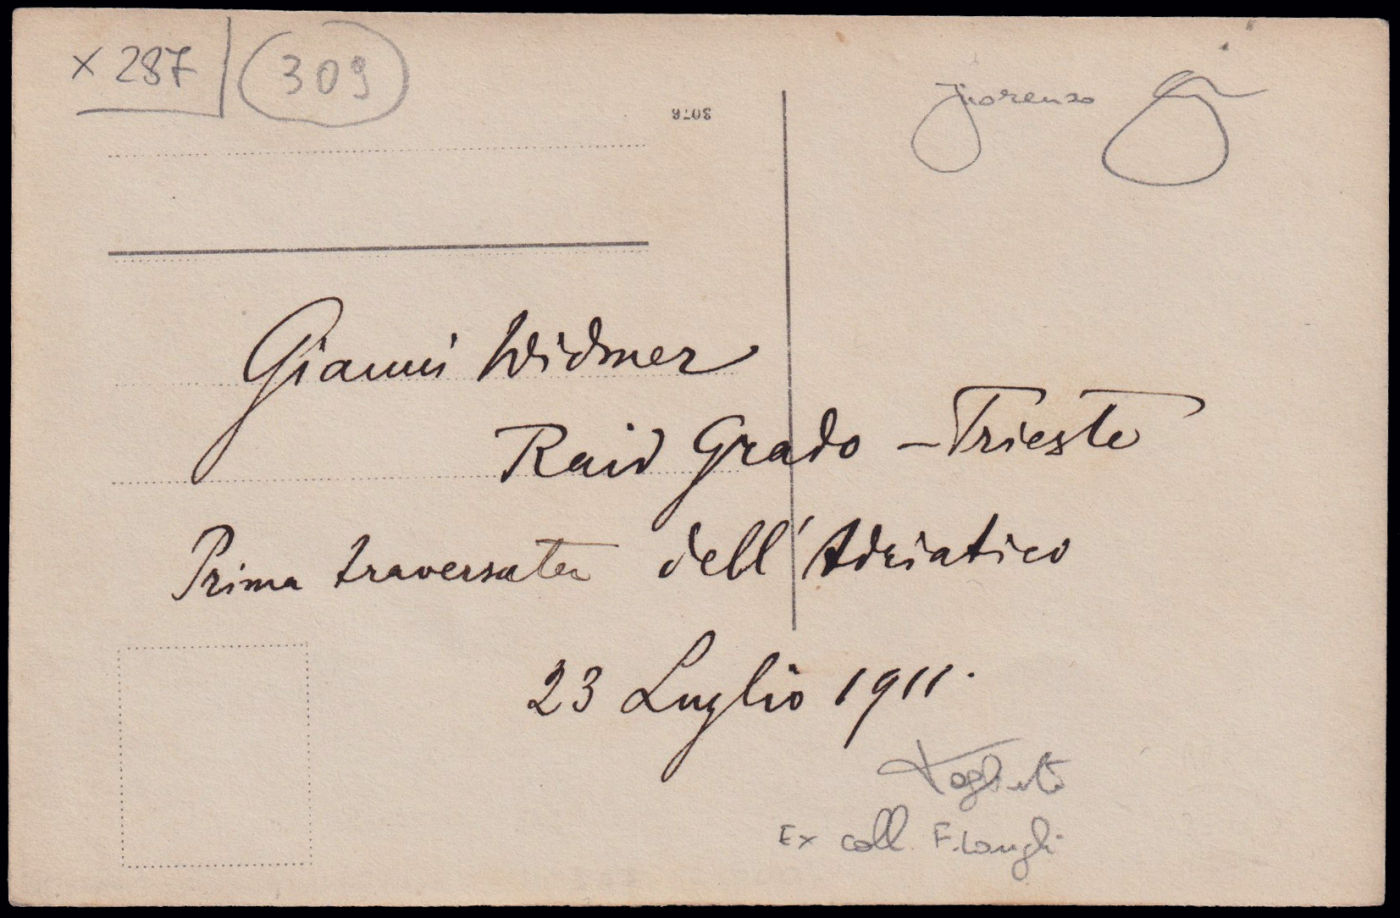 x 287
309
3078
Fiorenzo
Gianni Widmer
Raid Grado - Trieste
Prima traversata dell'Adriatico
23 Luglio 1911.
Ex coll. F. Longhi